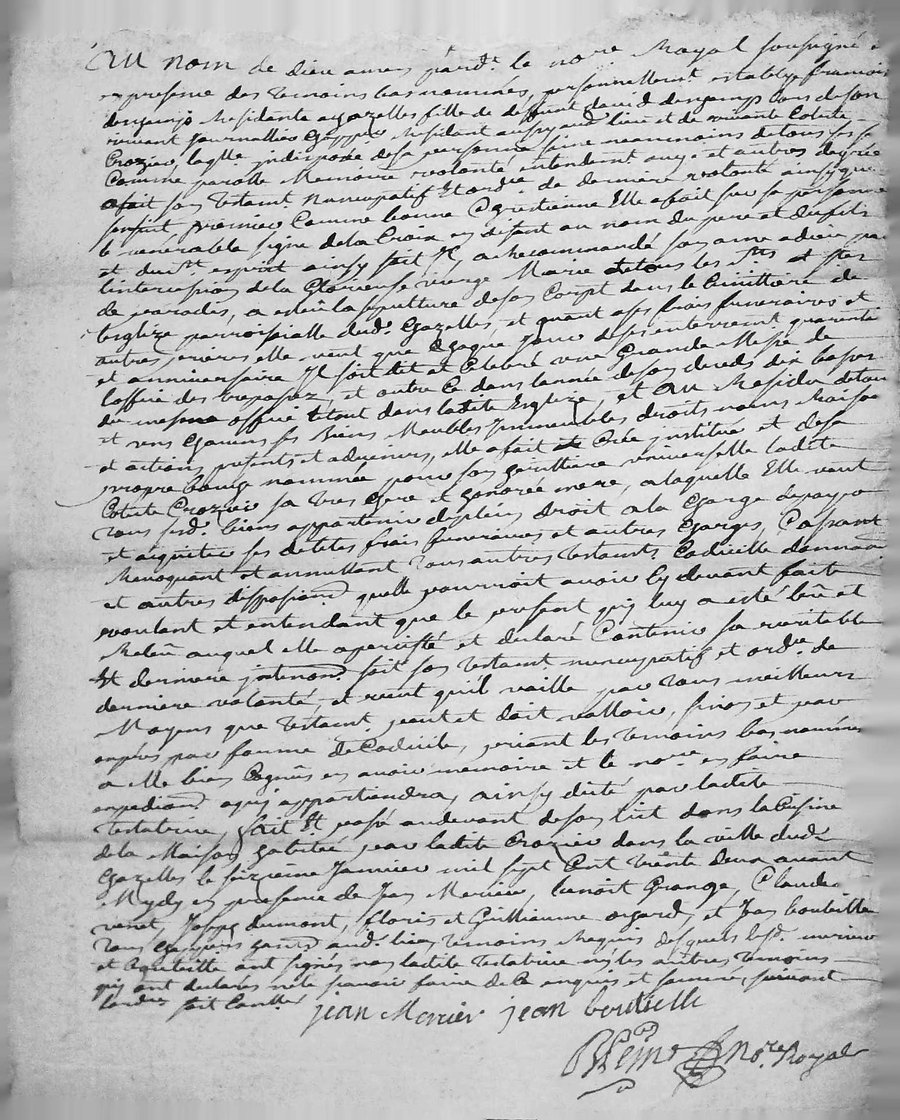 Au nom de dieu amen pard.t le no.re Royal soubsigné e
en presence des temoins bas nommés, personnellement establye francoise
deschamps Residante a gazelles fille de deffunt david deschamps vous de son
vivant Journallier
Crozier, laqlle indisposée de sa personne saine neanmoins de tous ses s
Comme parolle Memoire volonté entendem.t ouye et autres degrée
a fait son testam.t nuncupatif et ord.re de derniere volonté ainsy que
sensuit premier Comme bonne Chretienne Elle a fait sur sa personne
le venerable signe de la Croix en disant au nom du pere et du fils
et du s.t esprit ainsy soit Il, a Recommandé son ame a dieu par
lintercession de la Glorieuse vierge Marie de tous les s.ts et s.tes
de paradis, a esleu la sepulture de son Corps dans le Cimittiere de
leglize parroissialle dud. Chazelles, et quant a ses frais funeraires et
autres prieres elle veut que chaque jour de ses enterrement quarante
et anniversaire Il soit dit et Celebré une Grande Messe de
loffice des trepassez, et outre Ce dans lannée de son deceds dix basses
du mesme office le tout dans ladite Eglize, et Au Residu de tous
et uns Chacuns ses Biens Meubles Immeubles droits noms Raisons
et actions presents et advenirs, elle a fait Crée institue et de sa
propre bouche nommée pour son heritiere universelle ladite
Colette Crozier sa tres Chere et honorée mere, a laquelle Elle veut
tous sesd. biens appartenir de plein droit a la Charge de payer
et acquitter ses dettes frais funeraires et autres Charges, Cassant
Revoquant et annullant tous autres testam.ts Codicille donnaon
et autres disposions quelle pourroit avoir Cy devant fait
voulant et entendant que le present quy luy a esté leu et
Releu auquel elle a persisté et declaré Contenir sa veritable
et derniere intention soit son testam.t nuncupatif et ord.re de
derniere volonté, et veut quil vaille par tous meilleurs
Moyens que testam.t peut et doit valloir, sinon et par
aupres par forme de Codicile, priant les temoins bas nommés
a Elle bien Cognus en avoir memoire et le no.re en faire
expedion a quy appartiendra, ainsy dicté par ladite
testatrice, fait et passé au devant de son lict dans la Cuisine
de la Maison habitée par ladite Crozier dans la ville dud.
Chazelles le seizieme Janvier mil sept Cent vingt deux avant
Mydy en presence de Jean Mercier, benoist Grange, Claude
venet, Joseph dumont, floris et Guilliaume orgard, et Jean bouteille
tous Chapiers aud. lieu temoins Requis desquels lesd. mercier
et bouteille ont signés non ladite testatrice ny les autres temoins
quy ont declarés ne le sçavoir faire de ce enquis et sommés suivant
jean Mercier jean bouteille
No.re Royal